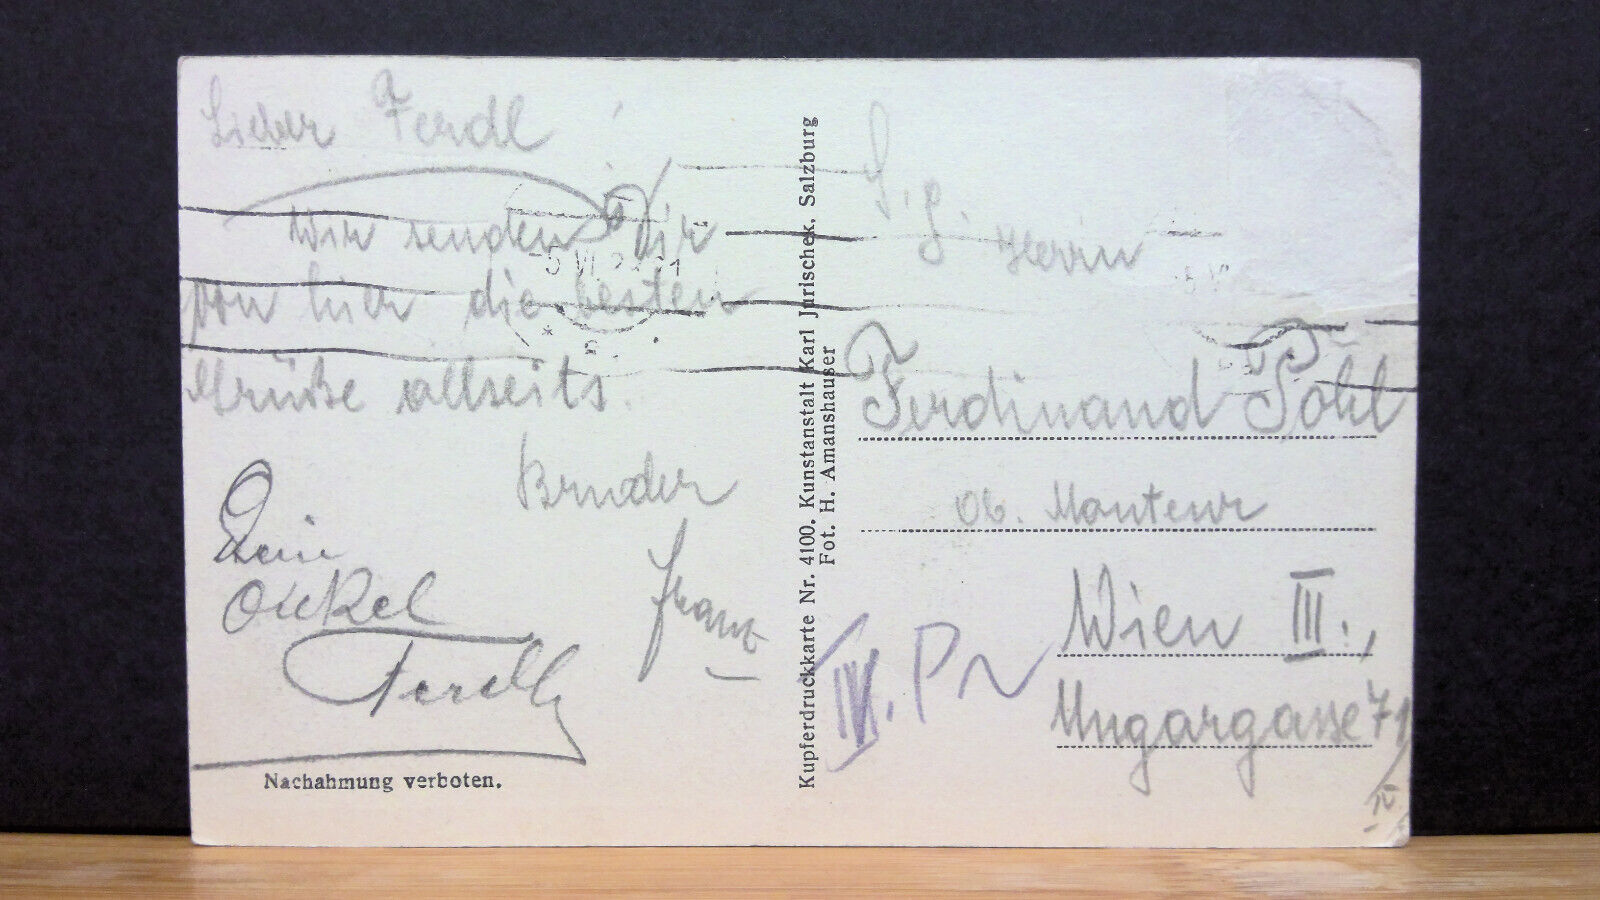 Lieber Ferdl!
Wir senden Dir
von hier die besten
Grüße allseits.
Bruder
Franz
Dein
Onkel
Ferdl
Nachahmung verboten.
Kupferdruckkarte Nr. 4100. Kunstanstalt Karl Jurischek, Salzburg
Fot. H. Amanshauser
S. H. Herrn
Ferdinand Pohl
Ob. Monteur
Wien III.,
Ungargasse 71
IV. P
5 VI